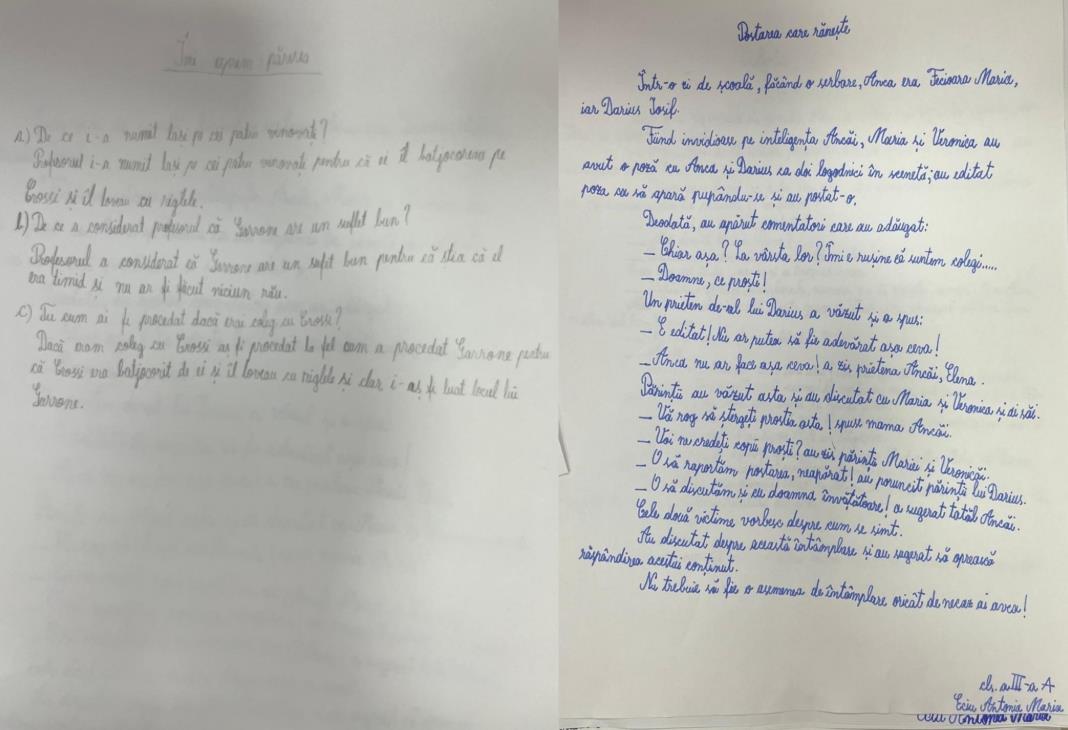 Îmi exprim părerea
a.) De ce i-a numit lași pe cei patru vinovați?
Profesorul i-a numit lași pe cei patru vinovați pentru că ei îl batjocoreau pe
Crossi și îl loveau cu riglele.
b.) De ce a considerat profesorul că Garrone are un suflet bun?
Profesorul a considerat că Garrone are un suflet bun pentru că știa că el
era timid și nu ar fi făcut niciun rău.
c.) Tu cum ai fi procedat dacă erai coleg cu Crossi?
Dacă eram coleg cu Crossi aș fi procedat la fel cum a procedat Garrone pentru
că Crossi era batjocorit de ei și îl loveau cu riglele și clar i-aș fi luat locul lui
Garrone.
Postarea care rănește
Într-o zi de școală, făcând o serbare, Anca era Fecioara Maria,
iar Darius Iosif.
Fiind invidioase pe inteligența Ancăi, Maria și Veronica au
avut o poză cu Anca și Darius ca doi logodnici în scenetă; au editat
poza ca să apară pupându-se și au postat-o.
Deodată, au apărut comentatori care au adăugat:
– Chiar așa? La vârsta lor? Îmi e rușine că suntem colegi.....
– Doamne, ce proști!
Un prieten de-al lui Darius a văzut și a spus:
– E editat! Nu ar putea să fie adevărat așa ceva!
– Anca nu ar face așa ceva! a zis prietena Ancăi, Elena.
Părinții au văzut asta și au discutat cu Maria și Veronica și ai săi.
– Vă rog să ștergeți prostia asta! spuse mama Ancăi.
– Voi ne credeți copii proști? au zis părinții Mariei și Veronicăi.
– O să raportăm postarea, neapărat! au poruncit părinții lui Darius.
– O să discutăm și cu doamna învățătoare! a sugerat tatăl Ancăi.
Cele două victime vorbesc despre cum se simt.
Au discutat despre această întâmplare și au sugerat să oprească
răspândirea acestui conținut.
Nu trebuie să fie o asemenea de întâmplare oricât de necaz ai avea!
cls. a III-a A
Eciu Antonia Maria